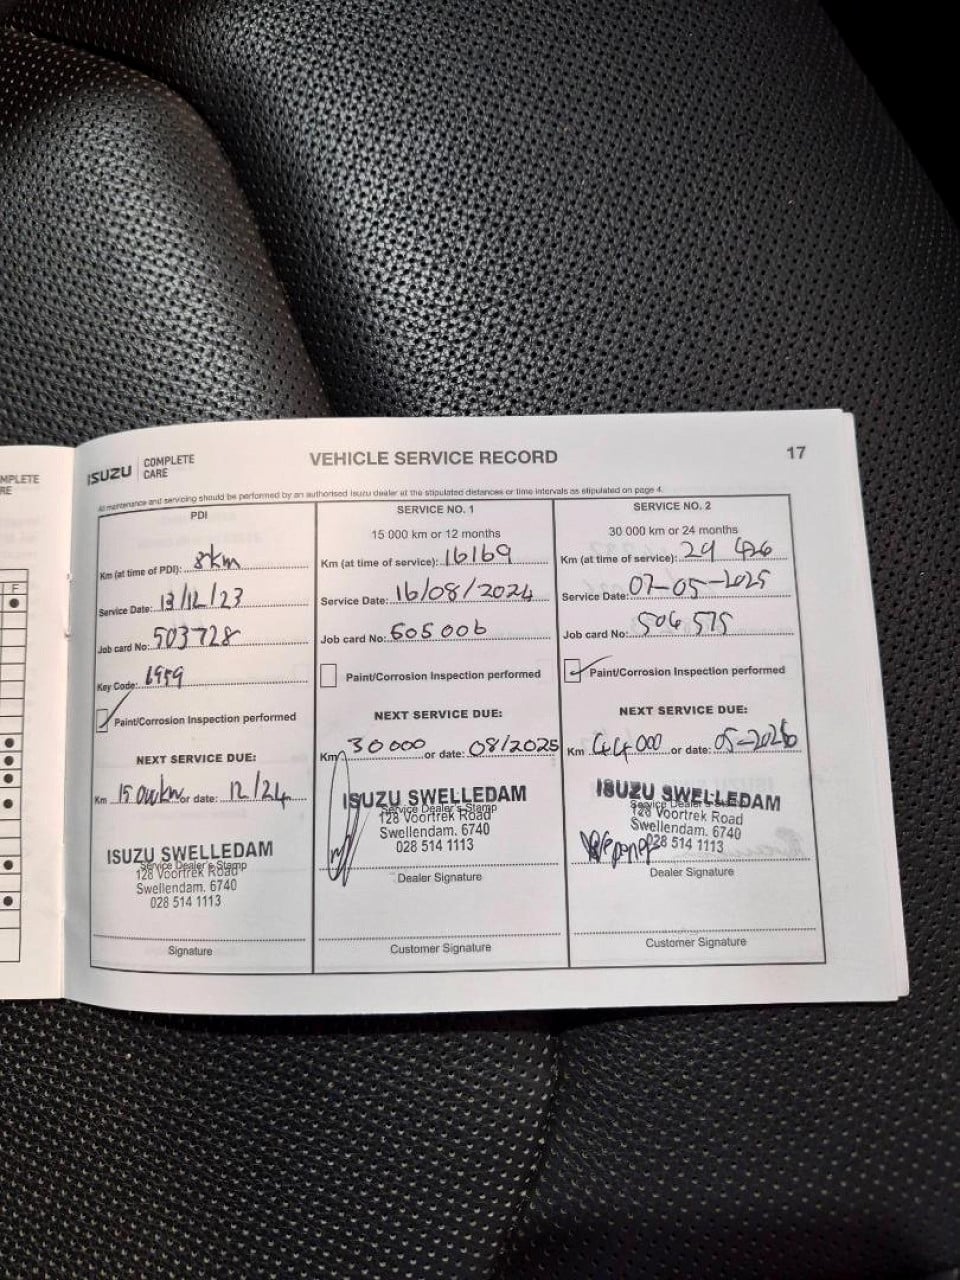 MPLETE
RE
F
ISUZU COMPLETE CARE
VEHICLE SERVICE RECORD
17
All maintenance and servicing should be performed by an authorised Isuzu dealer at the stipulated distances or time intervals as stipulated on page 4.
PDI
Km (at time of PDI): 8km
Service Date: 13/12/23
Job card No: 503728
Key Code: 1959
Paint/Corrosion Inspection performed
NEXT SERVICE DUE:
Km 15 000km or date: 12/24
ISUZU SWELLEDAM
Service Dealer's Stamp
128 Voortrek Road
Swellendam. 6740
028 514 1113
Signature
SERVICE NO. 1
15 000 km or 12 months
Km (at time of service): 16169
Service Date: 16/08/2024
Job card No: 505006
Paint/Corrosion Inspection performed
NEXT SERVICE DUE:
Km 30 000 or date: 08/2025
ISUZU SWELLEDAM
Service Dealer's Stamp
128 Voortrek Road
Swellendam. 6740
028 514 1113
Dealer Signature
Customer Signature
SERVICE NO. 2
30 000 km or 24 months
Km (at time of service): 29 426
Service Date: 07-05-2025
Job card No: 506 575
Paint/Corrosion Inspection performed
NEXT SERVICE DUE:
Km 44 000 or date: 05-2026
ISUZU SWELLEDAM
Service Dealer's Stamp
128 Voortrek Road
Swellendam. 6740
028 514 1113
Dealer Signature
Customer Signature